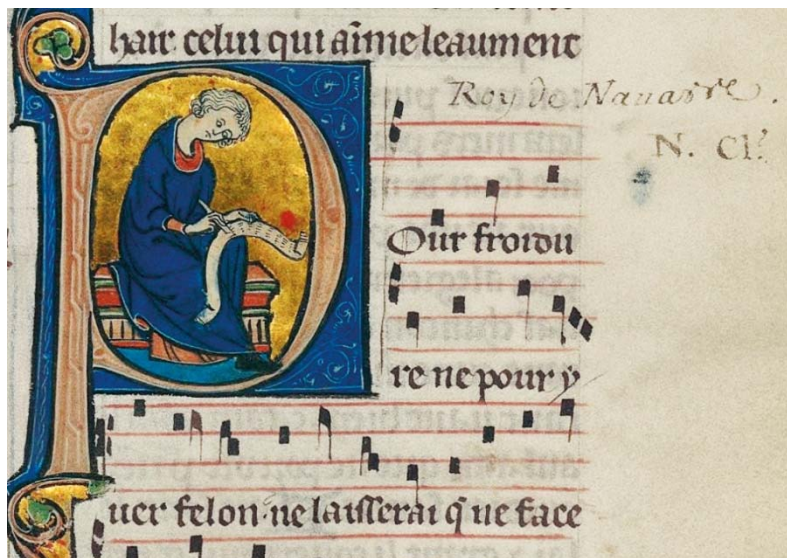 hair celui qui aīme leaument
Roy de Nauarre.
N. Cl.
Our froidu
re ne pour y
uer felon·ne laisserai q̄ ne face